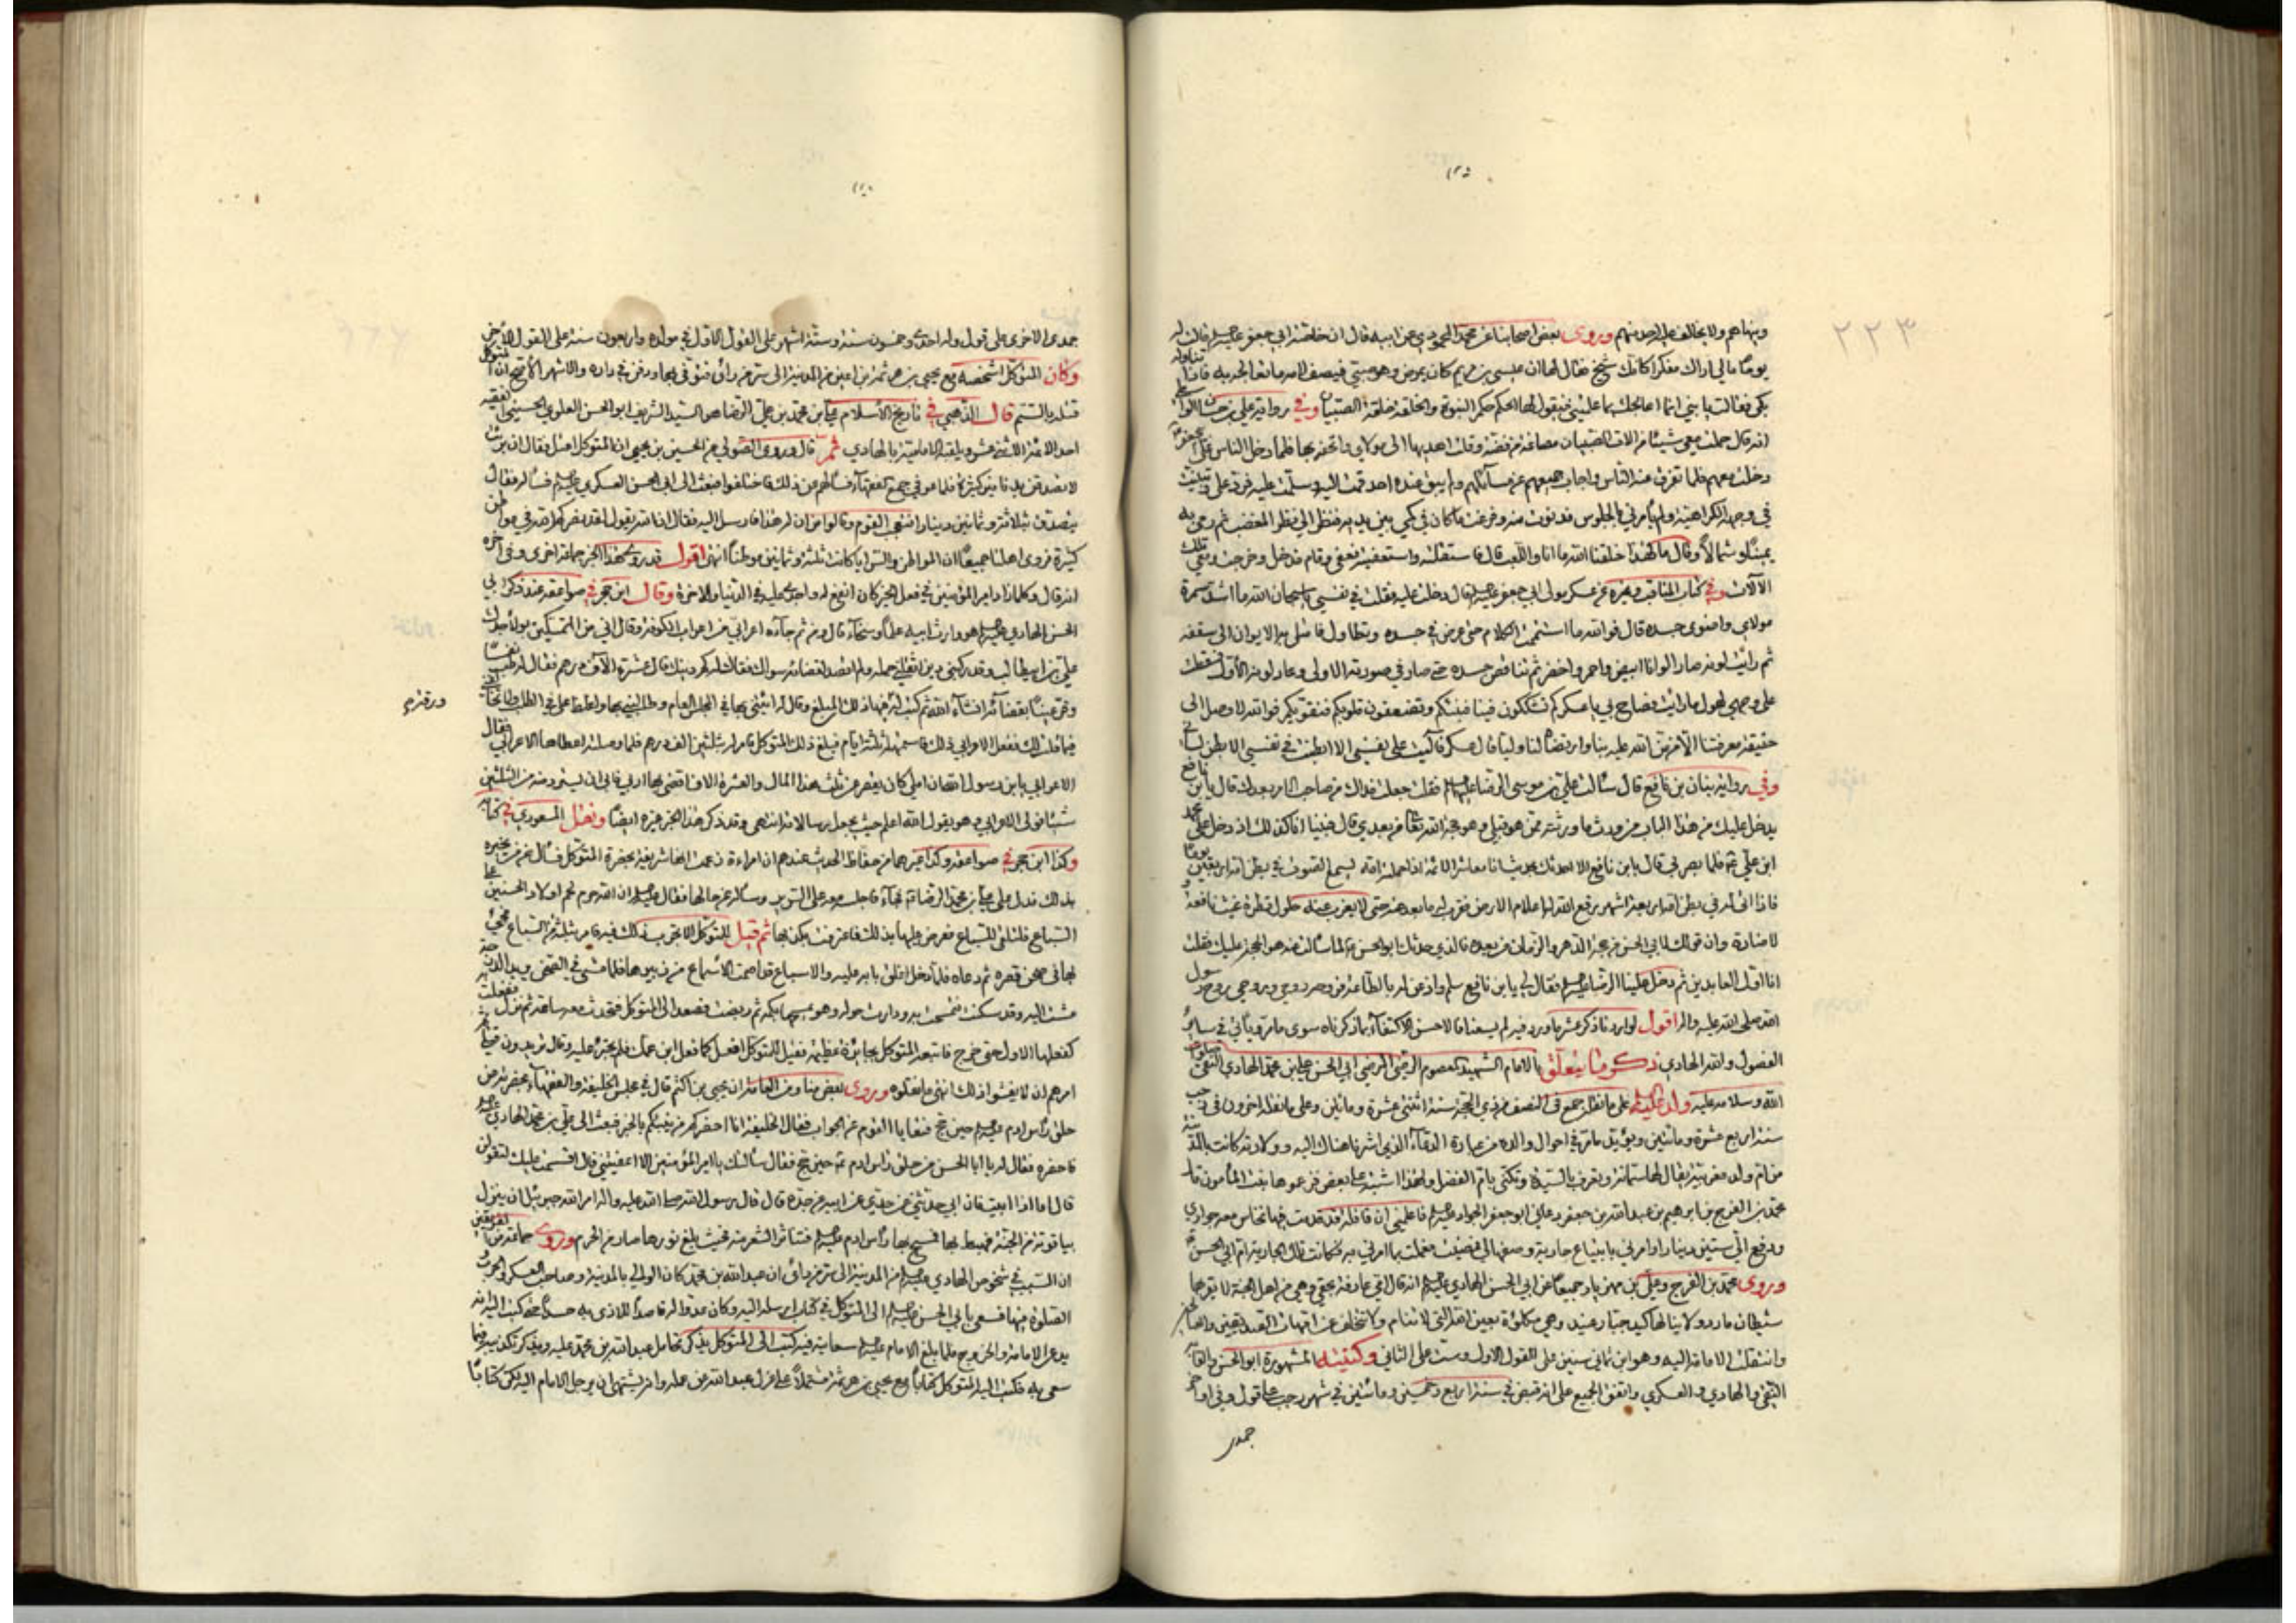 ٢٢٣
وينهاهم ولا يخالف عليه احد منهم وروى بعض اصحابنا عن محمد المحمودي عن ابيه قال ان خاضنة ابي جعفر عليه السلام قالت له
يوما مالي اراك مفكرا كانك شيخ فقال لها ان عيسى بن مريم كان يمرض وهو صبي فيصف لامه ما تعالجه به فاذا تناوله
بكى فقالت يا بني انما اعالجك بما علمتني فيقول لها الحكم حكم النبوة والخلقة خلقة الصبيان وفي رواية علي بن حسان الواسطي
انه قال حملت معي شيئا من الات الصبيان مصاغة من فضة وقلت اهديها الى مولاي واتحفه بها فلما دخل الناس على
دخلت معهم فلما تفرق عنه الناس واجاب جميعهم عن مسائلهم ولم يبق عنده احد قمت اليه وسلمت عليه فرد علي
في وجهه الكراهية ولم يأمرني بالجلوس فدنوت منه وفرغت ما كان في كمي بين يديه فنظر الي نظر المغضب ثم رمى به
يمينا وشمالا وقال ما لهذا خلقنا الله ما انا واللعب قال فاستقلته واستعفيته فعفى وقام فدخل وخرجت ومعي تلك
الآلات وفي كتاب المناقب وغيره عن عسكر مولى ابي جعفر عليه السلام قال دخلت عليه فقلت في نفسي يا سبحان الله ما اشد سمرة
مولاي واضوى جسده قال فوالله ما استتممت الكلام حتى عرض في جسده وتطاول فامتلى به الايوان الى سقفه
ثم رايت لونه صار الوانا ابيض واحمر واخضر ثم تناقص جسده حتى صار في صورته الاولى وعاد لونه الاول فسقطت
على وجهي لهول ما رايت فصاح بي يا عسكر كم تشككون فينا فننبئكم وتضعفون قلوبكم فنقويكم فوالله لا وصل الى
حقيقة معرفتنا الا من من الله عليه بنا وارتضاه لنا وليا قال عسكر فآليت على نفسي الا
وفي رواية بنان بن نافع قال سألت علي بن موسى الرضا عليهما السلام فقلت جعلت فداك من صاحب الامر بعدك قال يا ابن نافع
يدخل عليك من هذا الباب من ورث ما ورثته ممن هو قبلي وهو حجة الله تعالى من بعدي قال فبينا انا كذلك اذ دخل محمد
ابن علي فلما بصر بي قال يا ابن نافع الا احدثك بحديث انا معاشر الائمة اذا حملته امه يسمع الصوت في بطن امه اربعين يوما
فاذا اتى له في بطن امه اربعة اشهر رفع الله له اعلام الارض فقرب له ما بعد عنه حتى لا يعزب عنه حلول قطرة غيث نافعة
لا ضارة وان قولك لابي الحسن من حجة الدهر والزمان من بعده فالذي حدثك ابو الحسن ما سالت عنه هو الحجة عليك فقلت
انا اول العابدين ثم دخل علينا الرضا عليه السلام فقال لي يا ابن نافع سلم واذعن له بالطاعة فروحه روحي وروحي روح رسول
الله صلى الله عليه واله اقول لو اردنا ذكر عشر ما ورد فيه لم يسعنا فالاحسن الاكتفاء بما ذكرناه سوى ما مر ويأتي في سائر
الفصول والله الهادي ذكر ما يتعلق بالامام الشهيد المعصوم الرضي المرضي ابي الحسن علي بن محمد الهادي النقي صلوات
الله وسلامه عليه ولد عليه السلام على ما نقل جمع في النصف من ذي الحجة سنة اثنتي عشرة ومائتين وعلى ما نقل اخرون في رجب
سنة اربع عشرة ومائتين ويؤيد ما مر في احوال والده من عبارة
من ام ولد مغربية يقال لها سمانة وتعرف بالسيدة وتكنى بام الفضل ولهذا اشتبه على بعض فزعموها بنت المأمون قال
محمد بن الفرج بن ابراهيم بن عبد الله بن جعفر دعاني ابو جعفر الجواد عليه السلام فاعلمني ان قافلة قد قدمت فيها نخاس معه جواري
ودفع الي ستين دينارا وامرني بابتياع جارية وصفها لي فمضيت فعملت بما امرني به فكانت تلك الجارية ام ابي الحسن
وروى محمد بن الفرج وعلي بن مهزيار جميعا عن ابي الحسن الهادي عليه السلام انه قال امي عارفة بحقي وهي من اهل الجنة لا يقربها
شيطان مارد ولا ينالها كيد جبار عنيد وهي مكلؤة بعين الله التي لا تنام ولا تتخلف عن امهات الصديقين والصالحين
وانتقلت الامامة اليه وهو ابن ثماني سنين على القول الاول وست على الثاني وكنيته المشهورة ابو الحسن والقابه
النقي والهادي والعسكري واتفق الجميع على انه قبض في سنة اربع وخمسين ومائتين في شهر رجب على قول وفي اواخر
جمدى
جمدى الاخرى على قول وله احدى وخمسون سنة وستة اشهر على القول الاول في مولده واربعون سنة على القول الاخر
وكان المتوكل اشخصه مع يحيى بن هرثمة بن اعين من المدينة الى سر من رأى فتوفي بها ودفن في داره والاشهر الاصح ان المتوكل
قتله بالسم قال الذهبي في تاريخ الاسلام علي بن محمد بن علي الرضا هو السيد الشريف ابو الحسن العلوي الحسيني الفقيه
احد الائمة الاثني عشر ويلقبه الامامية بالهادي ثم قال وروى الصولي عن الحسين بن يحيى ان المتوكل اعتل فقال ان برئت
لاتصدقن بدنانير كثيرة فلما عوفي جمع الفقهاء فسألهم عن ذلك فاختلفوا فبعث الى ابي الحسن العسكري عليه السلام فسأله فقال
يتصدق بثلاثة وثمانين دينارا القوم وقالوا من اين له هذا فارسل اليه فقال ان الله يقول لقد نصركم الله في مواطن
كثيرة فروى اهلنا جميعا ان المواطن والسرايا كانت ثلثة وثمانين موطنا انتهى اقول قد روى هذا الخبر جماعة اخرى وفي اخره
انه قال وكلما زاد امير المؤمنين في فعل الخير كان انفع له واجدى عليه في الدنيا والاخرة وقال ابن حجر في صواعقه عند ذكر ابي
الحسن الهادي عليه السلام هو وارث ابيه علما وسخاء قال ومن ثم جاءه اعرابي من اعراب الكوفة وقال اني من المتمسكين بولاء جدك
علي بن ابي طالب وقد ركبني دين اثقلني حمله ولم اقصد لقضائه سواك فقال له كم دينك قال عشرة الاف درهم فقال له طب نفسا
وقر عينا بقضائه انشاء الله ثم كتب له ورقة فيها ذلك المبلغ وقال له ائتني بها في المجلس العام وطالبني بها واغلظ علي في الطلب
ورقة صح
ففعل الاعرابي ذلك فاستمهله ثلثة ايام فبلغ ذلك المتوكل فامر له بثلثين الف درهم فلما وصلته اعطاها الاعرابي فقال
الاعرابي يا ابن رسول الله ان املي كان يقصر عن ثلث هذا المال والعشرة الاف اقضي بها اربي فابى ان يسترد منه من الثلثين
شيئا فولى الاعرابي وهو يقول الله اعلم حيث يجعل رسالاته انتهى وقد ذكر هذا الخبر غيره ايضا ونقل المسعودي في كتابه
وكذا ابن حجر في صواعقه وكذا غيرهما من حفاظ الحديث عندهم ان امراءة زعمت انها شريفة بحضرة المتوكل فسأل عمن يخبره
بذلك فدل على علي بن محمد الرضا فجاء فاجلسه معه على السرير وسأله عن حالها فقال عليه السلام ان الله حرم لحم اولاد الحسنين على
السباع فلتلق للسباع فعرض عليها بذلك فاعترفت بكذبها ثم قيل للمتوكل الا تجرب ذلك فيه فامر بثلثة من السباع فجئ
بها في صحن قصره ثم دعاه فلما دخل اغلق بابه عليه والاسباع قد اصمت الاسماع من زئيرها فلما مشى في الصحن يريد الدرجة
مشت اليه وقد سكنت فتمسحت به ودارت حوله وهو يمسحها بكمه ثم ربضت فصعد الى المتوكل فتحدث معه ساعة ثم نزل ففعلت
كفعلها الاول حتى خرج فاتبعه المتوكل بجائزة عظيمة فقيل للمتوكل افعل كما فعل ابن عمك فلم يجسر عليه وقال تريدون قتلي ثم
امرهم ان لا يفشوا ذلك انتهى ما نقلوه وروى بعض منا ومن العامة ان يحيى بن اكثم قال في مجلس الخليفة والفقهاء بحضرته من
حلق رأس ادم عليه السلام حين حج فتعايا القوم عن الجواب فقال الخليفة انا احضركم من ينبئكم بالخبر فبعث الى علي بن محمد الهادي عليه السلام
فاحضره فقال له يا ابا الحسن من حلق رأس ادم حين حج فقال سألتك يا امير المؤمنين الا اعفيتني قال اقسمت عليك لتقولن
قال اما اذا ابيت فان ابي حدثني عن جدي عن ابيه عن جده قال قال رسول الله صلى الله عليه واله امر الله جبرئيل ان ينزل
بياقوتة من الجنة فهبط بها فمسح بها رأس ادم عليه السلام فتناثر الشعر منه فحيث بلغ نورها صار من الحرم وروى جماعة من الفريقين
ان السبب في شخوص الهادي عليه السلام من المدينة الى سر من رأى ان عبد الله بن محمد كان الوالي بالمدينة وصاحب العسكر والحرب و
الصلوة فيها فسعى بابي الحسن عليه السلام الى المتوكل في كتاب ارسله اليه وكان عدوا له قاصدا للاذى به حسدا حتى كتب اليه انه
يدعي الامامة والخروج فلما بلغ الامام عليه السلام سعايته فيه كتب الى المتوكل يذكر تحامل عبد الله بن محمد عليه ويذكر تكذيبه فيما
سعى به فكتب اليه المتوكل كتابا مع يحيى بن هرثمة مشتملا على عزل عبد الله عن عمله وانه يشتهي ان يرحل الامام اليه لكن كتابا